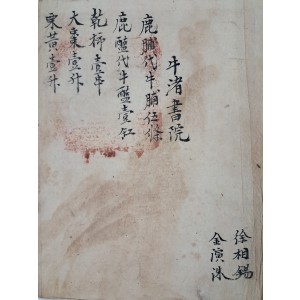 牛渚書院
鹿脯代牛脯伍條
鹿醢代牛醢壹缸
乾柹壹串
大棗壹升
栗黃壹升
徐相錫
金演洙